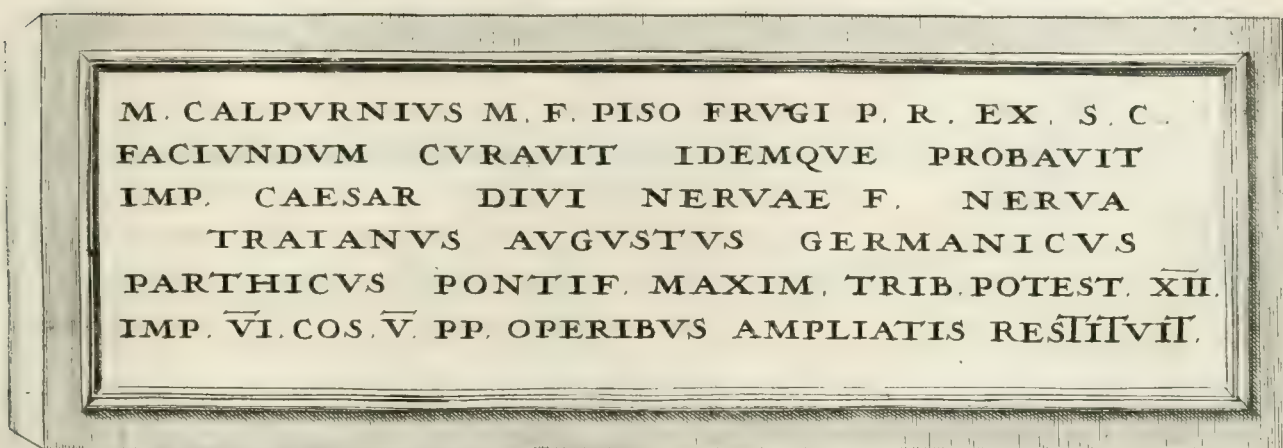 M. CALPVRNIVS M. F. PISO FRVGI P. R. EX. S. C.
FACIVNDVM CVRAVIT IDEMQVE PROBAVIT
IMP. CAESAR DIVI NERVAE F. NERVA
TRAIANVS AVGVSTVS GERMANICVS
PARTHICVS PONTIF. MAXIM. TRIB. POTEST. X̅I̅I̅.
IMP. V̅I. COS. V̅. PP. OPERIBVS AMPLIATIS RESTITVIT.